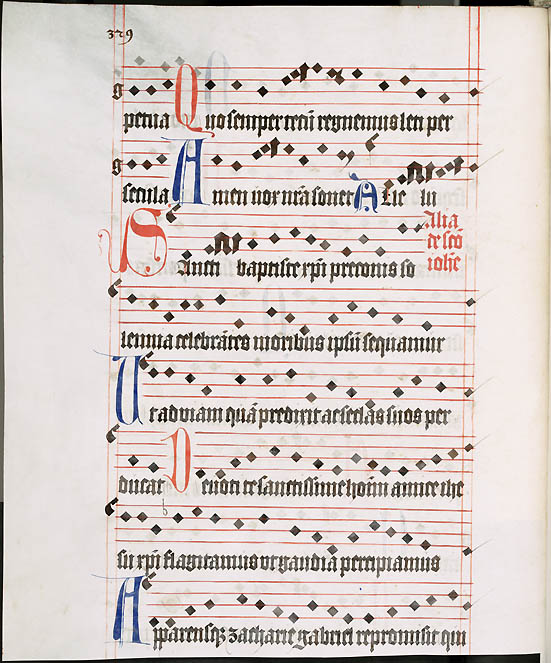 329
petua Quo semper tecū regnemus leti per
secula Amen uox nr̄a sonet Alle lu
Alia
de scō
ioh̄e
Sancti baptiste xp̄i preconis so
lennia celebrātes moribus ipsū sequamur
Ut ad uiam quā predixit asseclas suos per
ducat Deuoti te sanctissime hoīm amice ihe
su xp̄i flagitamus vt gaudia percipiamus
Apparensqꝫ zacharie gabriel repromisit qui